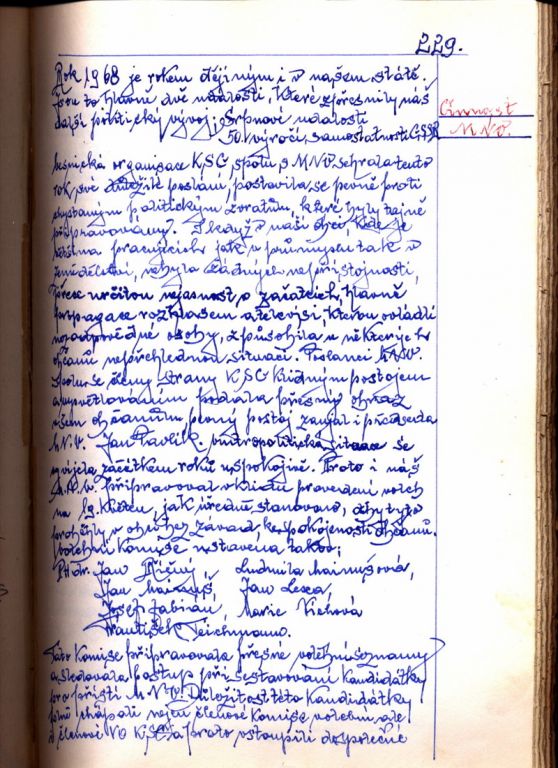 229.
Rok 1968 je rokem dějiným i v našem státě.
Jsou to hlavně dvě události, které zpřesnily náš
další politický vývoj; Srpnové události
50. výročí, samostatnosti ČSSR
Činnost
MNV.
organisace KSČ spolu s MNV sehrála tento
rok své důležité poslání postavila se pevně proti
chystaným politickým zvratům, které byly tajně
připravovány. I když v naší obci, kde je
většina pracujících jak v průmyslu tak v
zemědělství, nebyla žádných nepřístojností,
přece určitou nejasnost v začátcích, hlavně
propagace rozhlasem a televisí, kterou ovládli
nezodpovědné osoby, způsobila u některých
občanů nepřehlednou situaci. Poslanci MNV.
spolu se členy strany KSČ klidným postojem
a vysvětlováním podala přesný obraz
všem občanům pevný postoj zaujal i předseda
MNV. Jan Pavlík. vnitropolitická se
vyvíjela začátkem roků uspokojivě. Proto i náš
MNV. připravoval v klidu provedení voleb
na 19. květen, jak úředně stanoveno, aby tyto
proběhly v obci bez závad, ke spokojenosti občanů.
volební komise ustavena takto;
Jan Ludmila
Jan Jan
Josef Fabián, Marie
František Teichmann.
Tato komise připravovala přesné volební seznamy
a sledovala postup při sestavování kandidátky
pro příští MNV. Důležitost této kandidátky
plně chápali nejen členové komise volební, ale
i členové VO KSČ a proto vstoupili do společné